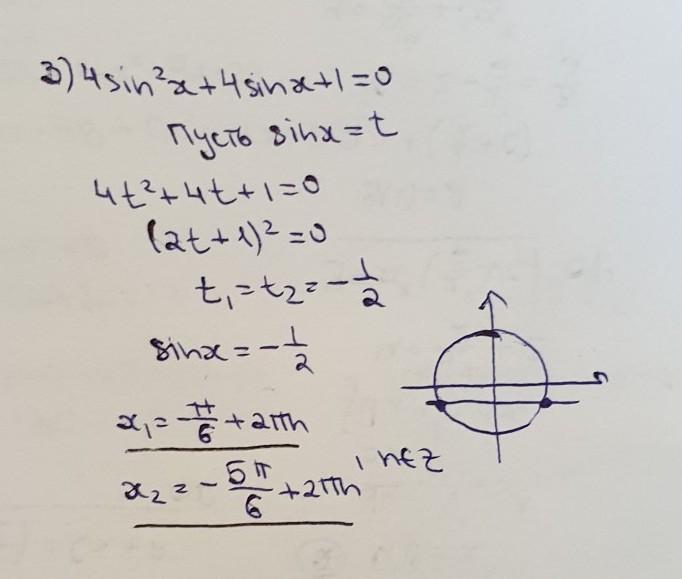 3) 4sin²x+4sinx+1=0
Пусть sinx=t
4t²+4t+1=0
(2t+1)²=0
t₁=t₂=-1/2
sinx=-1/2
x₁=-π/6+2πn
x₂=-5π/6+2πn, n∈Z